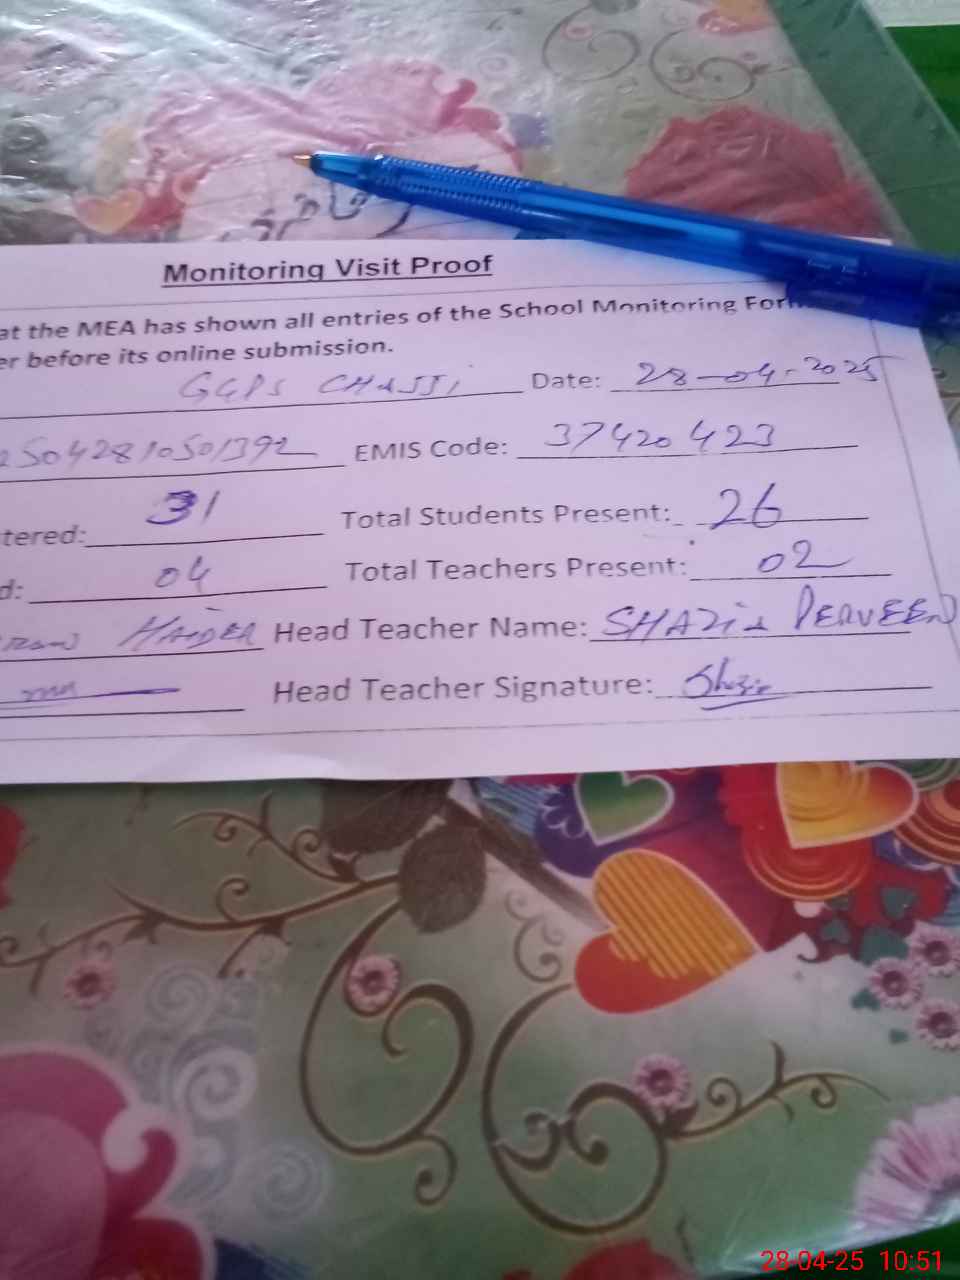 Monitoring Visit Proof
at the MEA has shown all entries of the School Monitoring Form
er before its online submission.
GGPS CHASSI Date: 28-04-2025
25042810501392 EMIS Code: 37420423
tered: 31 Total Students Present: 26
d: 04 Total Teachers Present: 02
HAIDER Head Teacher Name: SHAZIA PERVEEN
Head Teacher Signature: Shazia
28-04-25 10:51